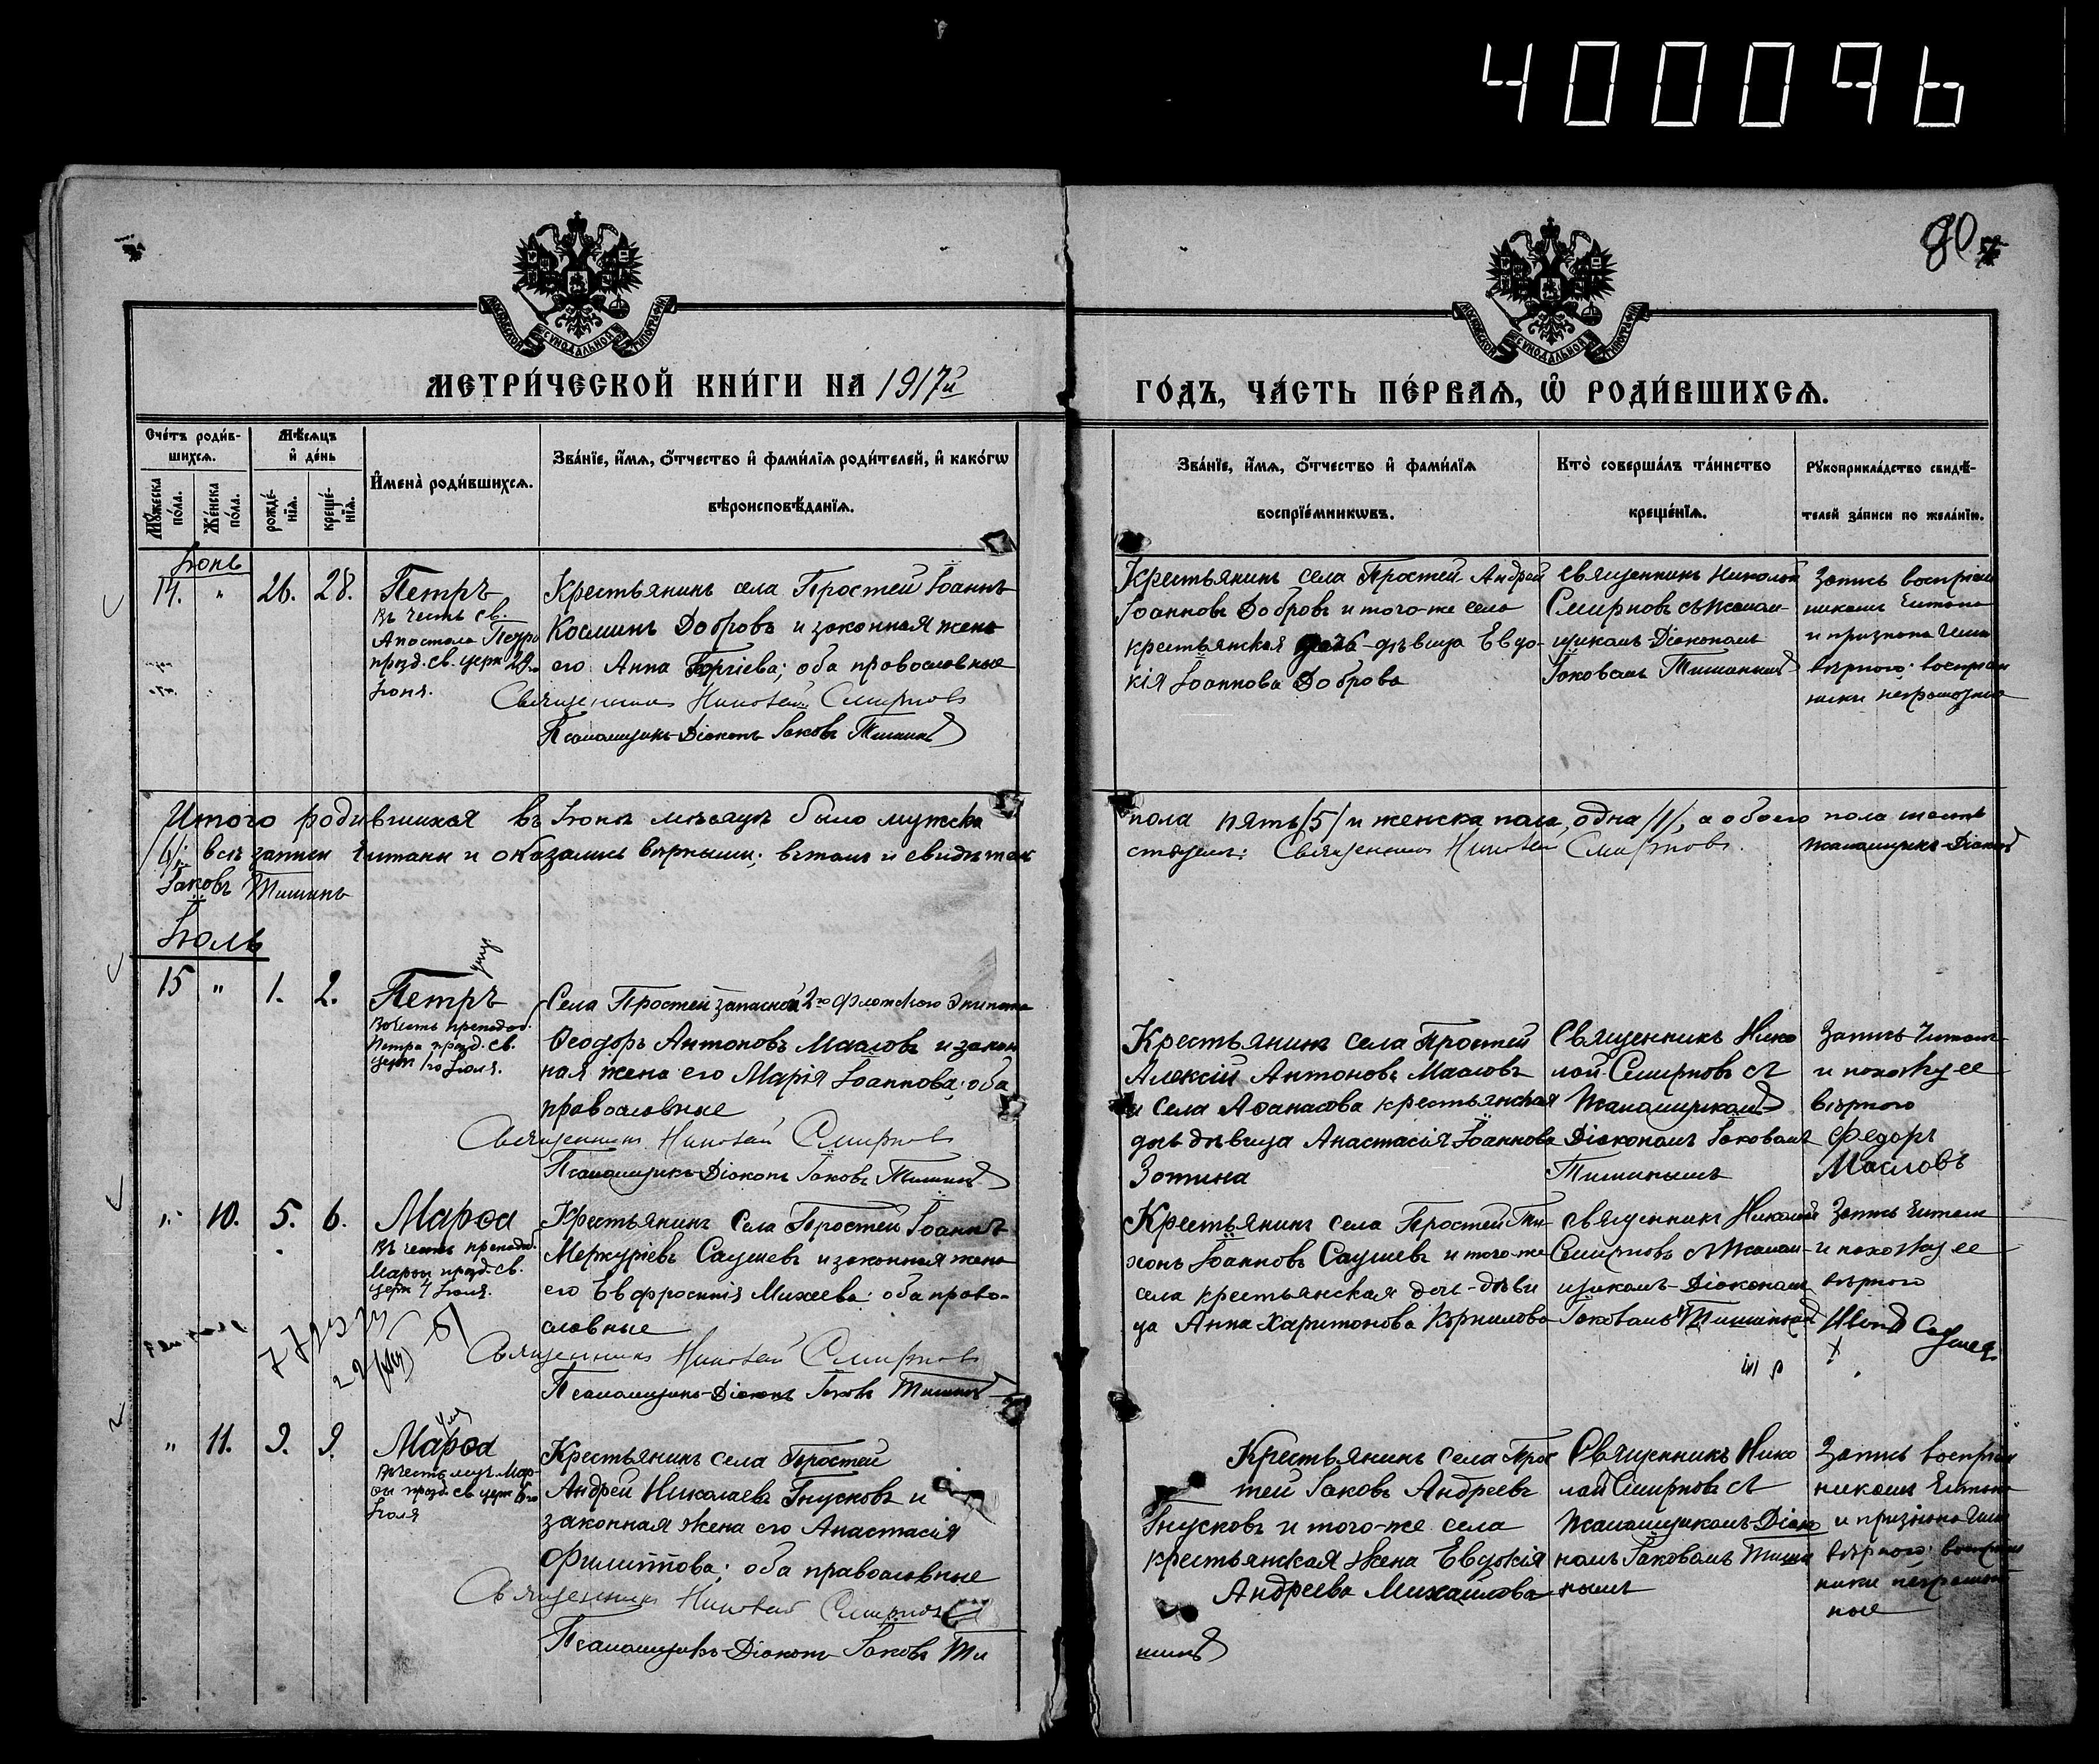 400096
80
МОСКОВСКОЙ СѴНОДАЛЬНОЙ ТИПОГРАФІИ
МОСКОВСКОЙ СѴНОДАЛЬНОЙ ТИПОГРАФІИ
МЕТРИ́ЧЕСКОЙ КНИ́ГИ НА 1917й
ГО́ДЪ, ЧА́СТЬ ПЕ́РВАѦ, Ѡ҆ РОДИ́ВШИХСѦ.
Сче́тъ роди́в-
шихсѧ.
Мѣ́сѧцъ
и҆ де́нь
И҆мена̀ роди́вшихсѧ.
Зва́нїе, и҆́мѧ, ѻ҆́тчество и҆ фами́лїѧ роди́телей, и҆ како́гѡ
вѣроисповѣ́данїѧ.
Мꙋ́жеска
по́ла.
Же́нска
по́ла.
рожде́-
нїѧ.
креще́-
нїѧ.
Зва́нїе, и҆́мѧ, ѻ҆́тчество и҆ фами́лїѧ
воспрїе́мникѡвъ.
Кто̀ соверша́лъ та́инство
креще́нїѧ.
Рꙋкоприкла́дство свидѣ́-
телей за́писи по жела́нїю.
Іюнь
14. " 26. 28.
Петръ
Въ честь св.
Апостола Петра
празд. св. церк 29го
Іюня.
Крестьянинъ села Простей Іоаннъ
Косминъ Добровъ и законная жена
его Анна Георгіева; оба православные
Священникъ Николай Смирновъ
Псаломщикъ-Діаконъ Іаковъ Тишинъ
Крестьянинъ села Простей Андрей
Іоанновъ Добровъ и того-же села
крестьянская дочь-дѣвица Евдо-
кія Іоаннова Доброва
Священникъ Николай
Смирновъ съ Псалом-
щикомъ-Діакономъ
Іаковомъ Тишинымъ
Запись воспріем
никами читана
и признана ими
вѣрною: воспріем
ники неграмотные
Итого родившихся въ Іюнѣ мѣсяцѣ было мужска
пола пять /5/ и женска пола, одна /1/, а обоего пола шесть
/6/; всѣ записи читаны и оказались вѣрными; въ томъ и свидѣтель
ствуемъ: Священникъ Николай Смирновъ. Псаломщикъ-Діаконъ
Іаковъ Тишинъ
Іюль
15 " 1. 2.
Петръ
Въ честь преподоб.
Петра празд. св.
церк 1го Іюля.
Села Простей запасной 2го Флотскаго Экипажа
Ѳеодоръ Антоновъ Масловъ и закон
ная жена его Марія Іоаннова; оба
православные
Священникъ Николай Смирновъ
Псаломщикъ-Діаконъ Іаковъ Тишинъ
Крестьянинъ села Простей
Алексій Антоновъ Масловъ
и села Аѳанасова крестьянская
дочь дѣвица Анастасія Іоаннова
Зотина
Священникъ Нико
лай Смирновъ съ
Псаломщикомъ
Діакономъ Іаковомъ
Тишинымъ
Запись читалъ
и нахожу ее
вѣрною
Федоръ
Масловъ
" 10. 5. 6.
Марѳа
Въ честь преподоб.
Марѳы празд. св.
церк 4 Іюля.
Крестьянинъ Села Простей Іоаннъ
Меркуріевъ Саушевъ и законная жена
его Евфросинія Михеева: оба право-
славные
Священникъ Николай Смирновъ
Псаломщикъ-Діаконъ Іаковъ Тишинъ
Крестьянинъ села Простей Ти-
хонъ Іоанновъ Саушевъ и того-же
села крестьянская дочь-дѣви
ца Анна Харитонова Корнилова
Священникъ Николай
Смирновъ съ Псалом-
щикомъ-Діакономъ
Іаковомъ Тишинымъ
Запись читалъ
и нахожу ее
вѣрною
" 11. 9. 9.
Марѳа
Въ честь муч. Мар-
ѳы празд. св. церк 6го
Іюля
Крестьянинъ села Простей
Андрей Николаевъ Гнусковъ и
законная жена его Анастасія
Филиппова; оба православные
Священникъ Николай Смирновъ
Псаломщикъ-Діаконъ Іаковъ Ти
шинъ
Крестьянинъ села Прос
тей Іаковъ Андреевъ
Гнусковъ и того-же села
крестьянская жена Евдокія
Андреева Михайлова
Священникъ Нико
лай Смирновъ съ
Псаломщикомъ-Діако
номъ Іаковомъ Тиши
нымъ
Запись воспріем
никами читана
и признана ими
вѣрною: воспріем
ники неграмот
ные